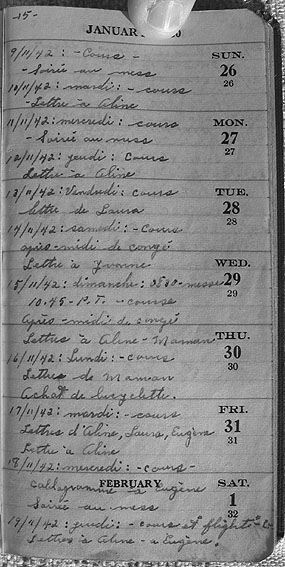 -15-
JANUAR
9/11/42: - Cours -
SUN.
- Soirée au mess
26
26
10/11/42: mardi: - cours
- Lettre à Aline
11/11/42: mercredi: cours
MON.
- Soirée au mess
27
12/11/42: jeudi: Cours
27
Lettre à Aline
13/11/42: Vendredi: cours
TUE.
lettre de Laura
28
14/11/42: samedi: - Cours
28
après-midi de congé
Lettre à Yvonne
WED.
15/11/42: dimanche: 0800-messe
29
10.45-P.T. - course
29
Après-midi de congé
Lettres à Aline - Maman
THU.
16/11/42: Lundi: - cours
30
Lettres de Maman
30
Achat de bicyclette.
17/11/42: mardi: - cours
FRI.
Lettres d'Aline, Laura, Eugène
31
Lettre à Aline
31
18/11/42: mercredi: - cours -
FEBRUARY
SAT.
à Eugène
1
Soirée au mess
32
19/11/42: jeudi: - cours et "flight"
Lettres à Aline - a Eugène.